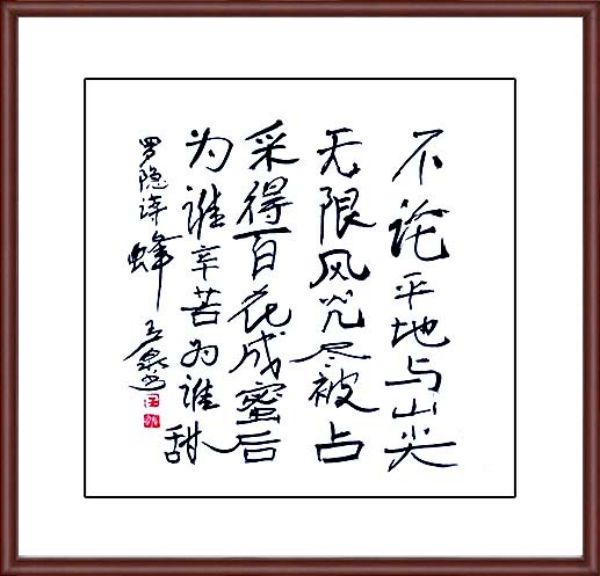 不论平地与山尖
无限风光尽被占
采得百花成蜜后
为谁辛苦为谁甜
罗隐诗蜂